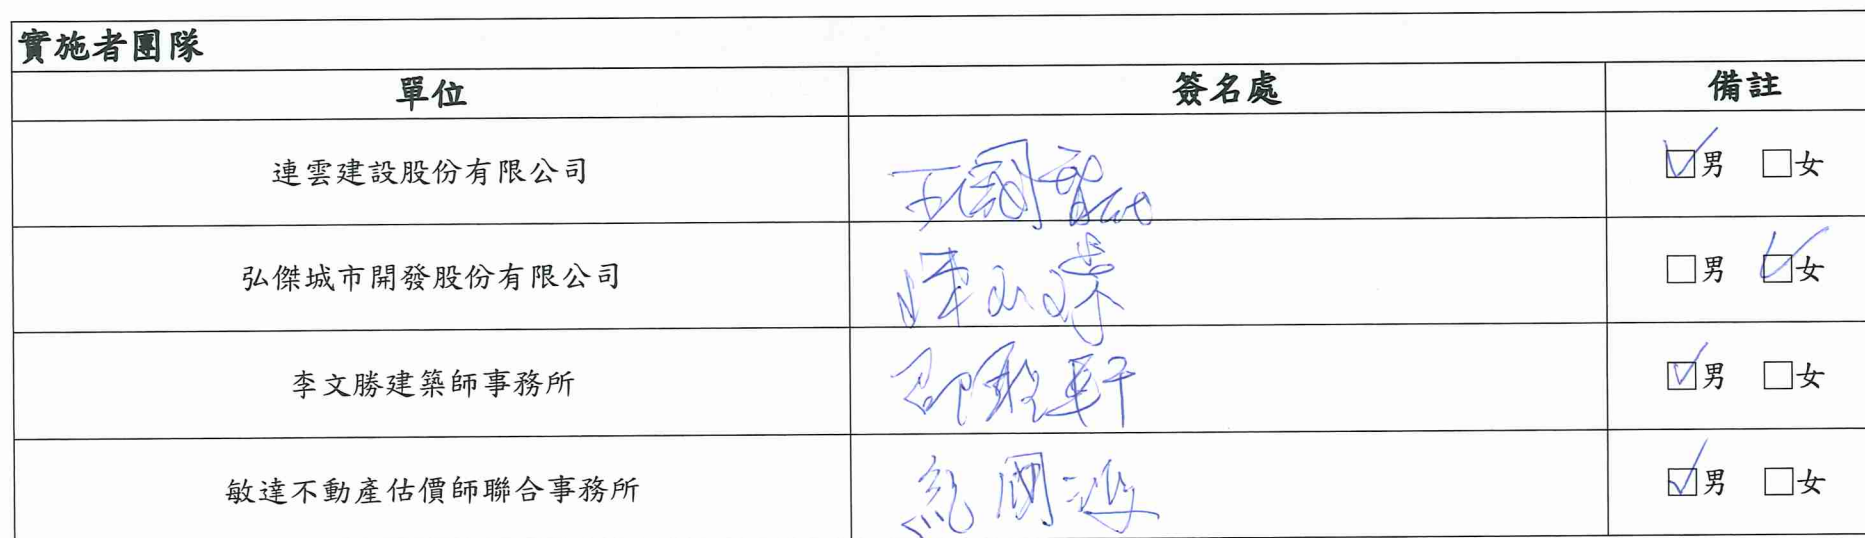 實施者團隊
單位 簽名處 備註
連雲建設股份有限公司 ☑男 ☐女
弘傑城市開發股份有限公司 ☐男 ☑女
李文勝建築師事務所 ☑男 ☐女
敏達不動產估價師聯合事務所 紀國鴻 ☑男 ☐女